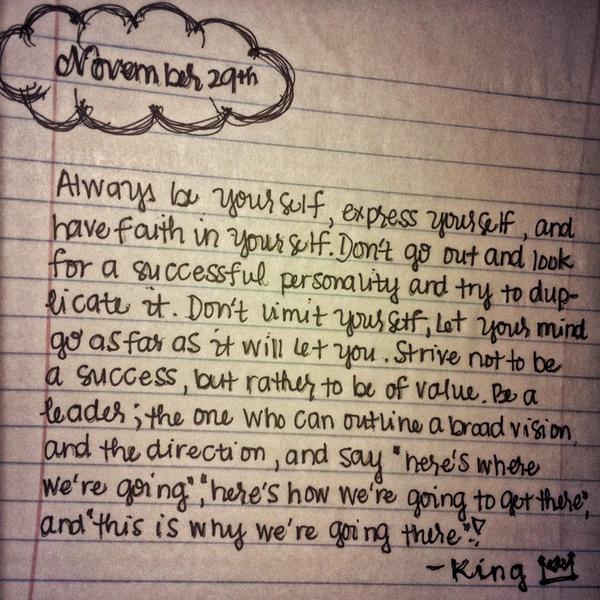 November 29th
Always be yourself, express yourself, and
have faith in yourself. Don't go out and look
for a successful personality and try to dup-
licate it. Don't limit yourself, let your mind
go as far as it will let you. Strive not to be
a success, but rather to be of value. Be a
leader; the one who can outline a broad vision,
and the direction, and say "here's where
we're going", "here's how we're going to get there",
and "this is why we're going there"!
- King